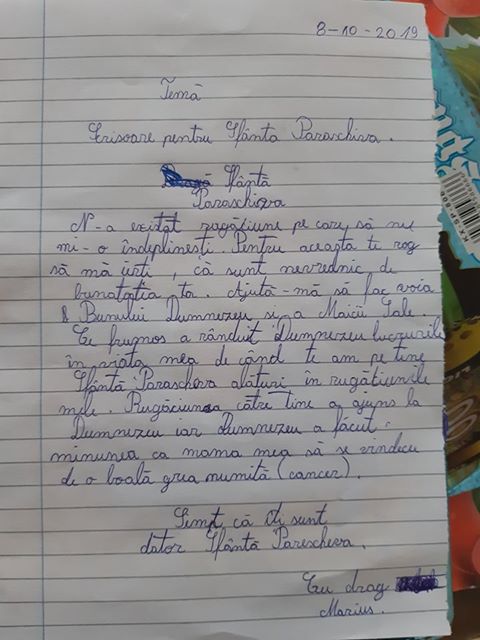 8-10-2019
Temă
Scrisoare pentru Sfânta Parascheva.
Sfântă
Parascheva
N-a existat rugățiune pe care să nu
mi-o îndeplinești. Pentru aceasta te rog
să mă ierti, că sunt nevrednic de
bunatatia ta. Ajută-mă să fac voia
Bunului Dumnezeu și a Maicii Sale.
Ce frumos a rânduit Dumnezeu lucrurile
în viața mea de când te am pe tine
Sfântă Parascheva alături în rugățiunile
mele. Rugăciunea către tine a ajuns la
Dumnezeu iar Dumnezeu a făcut
minunea ca mama mea să se vindece
de o boală grea numită (cancer).
Simt că îți sunt
dator Sfântă Parescheva.
Cu drag
Marius.